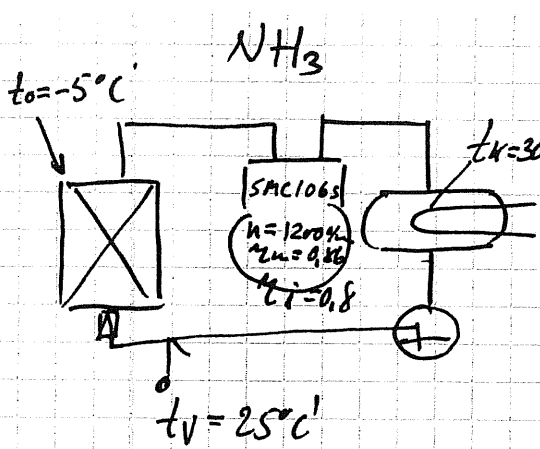 NH₃
t₀=-5°C
tк=30
SMC106S
n=1200
ηm=0,86
ηi=0,8
tv=25°C